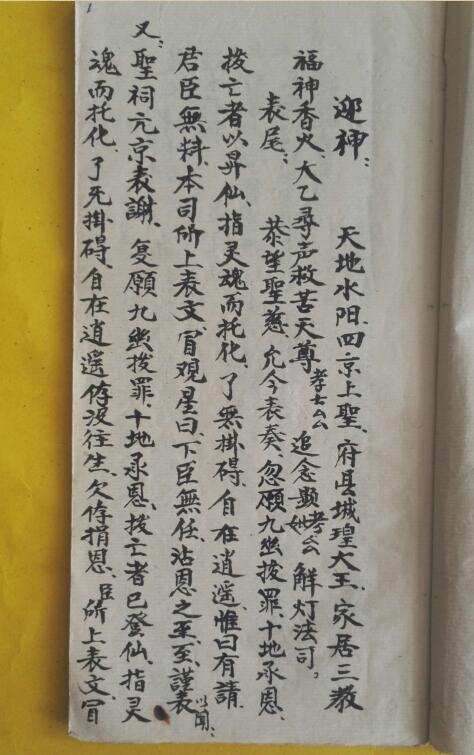 迎神：　天地水阳、四京上聖、府县城隍大王、家居三教
福神香火、大乙尋声救苦天尊 孝士厶厶 追念顕考妣厶 解灯法司。
表尾：　恭望聖慈、允今表奏、忽願九幽拔罪、十地承恩、
拔亡者以昇仙、指灵魂而托化、了無掛碍、自在逍遥、惟曰有請
君臣無料、本司所上表文、冒观星曰、下臣無任、沾恩之至、至、謹表以聞：
又：聖祠元京表謝、复願九幽拔罪、十地承恩、拔亡者已登仙、指灵
魂而托化、了旡掛碍、自在逍遥、俦没往生、欠俦捐恩、臣所上表文、冒